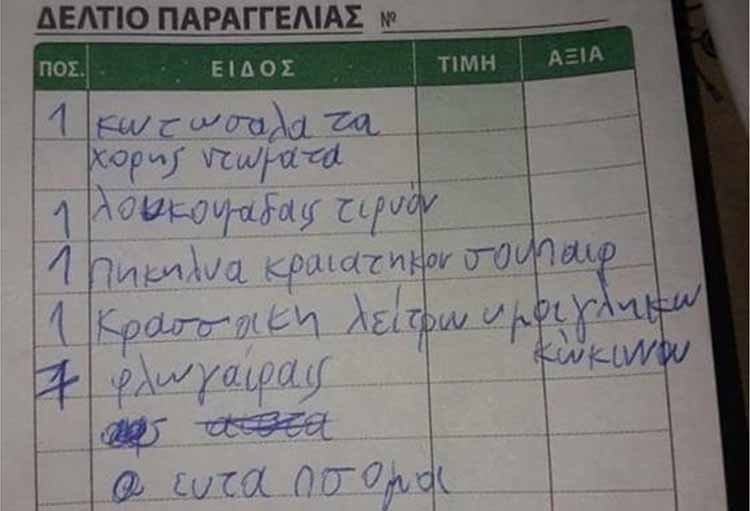 ΔΕΛΤΙΟ ΠΑΡΑΓΓΕΛΙΑΣ №
ΠΟΣ. ΕΙΔΟΣ ΤΙΜΗ ΑΞΙΑ
1 κωτωσαλατα
χορης ντωματα
1 λουκουμαδαις τιρυόν
1 πηκηλυα κραιατηκον σουπαιρ
1 Κρασσακη λείτρω ημοιγληκω
κώκινου
7 φλωγαίραις
ευτα ποσομαι